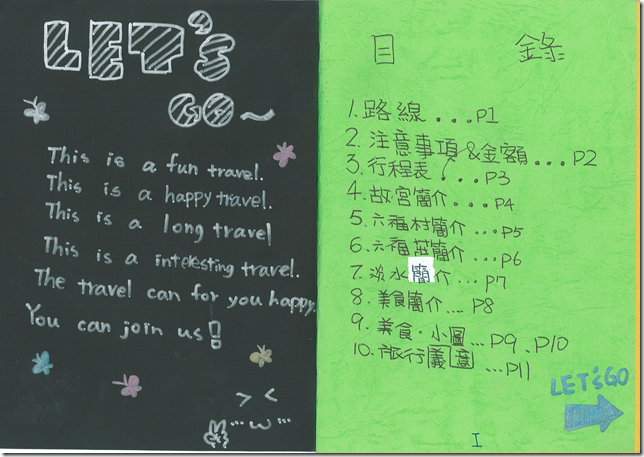 LET'S
GO~
This is a fun travel.
This is a happy travel.
This is a long travel
This is a interesting travel.
The travel can for you happy.
You can join us!
> <
...ω...
目 錄
1.路線...P1
2.注意事項&金額...P2
3.行程表...P3
4.故宮簡介...P4
5.六福村簡介...P5
6.六福莊簡介...P6
7.淡水簡介...P7
8.美食簡介....P8
9.美食·小圖...P9、P10
10.旅行義意...P11
LET'S GO
I